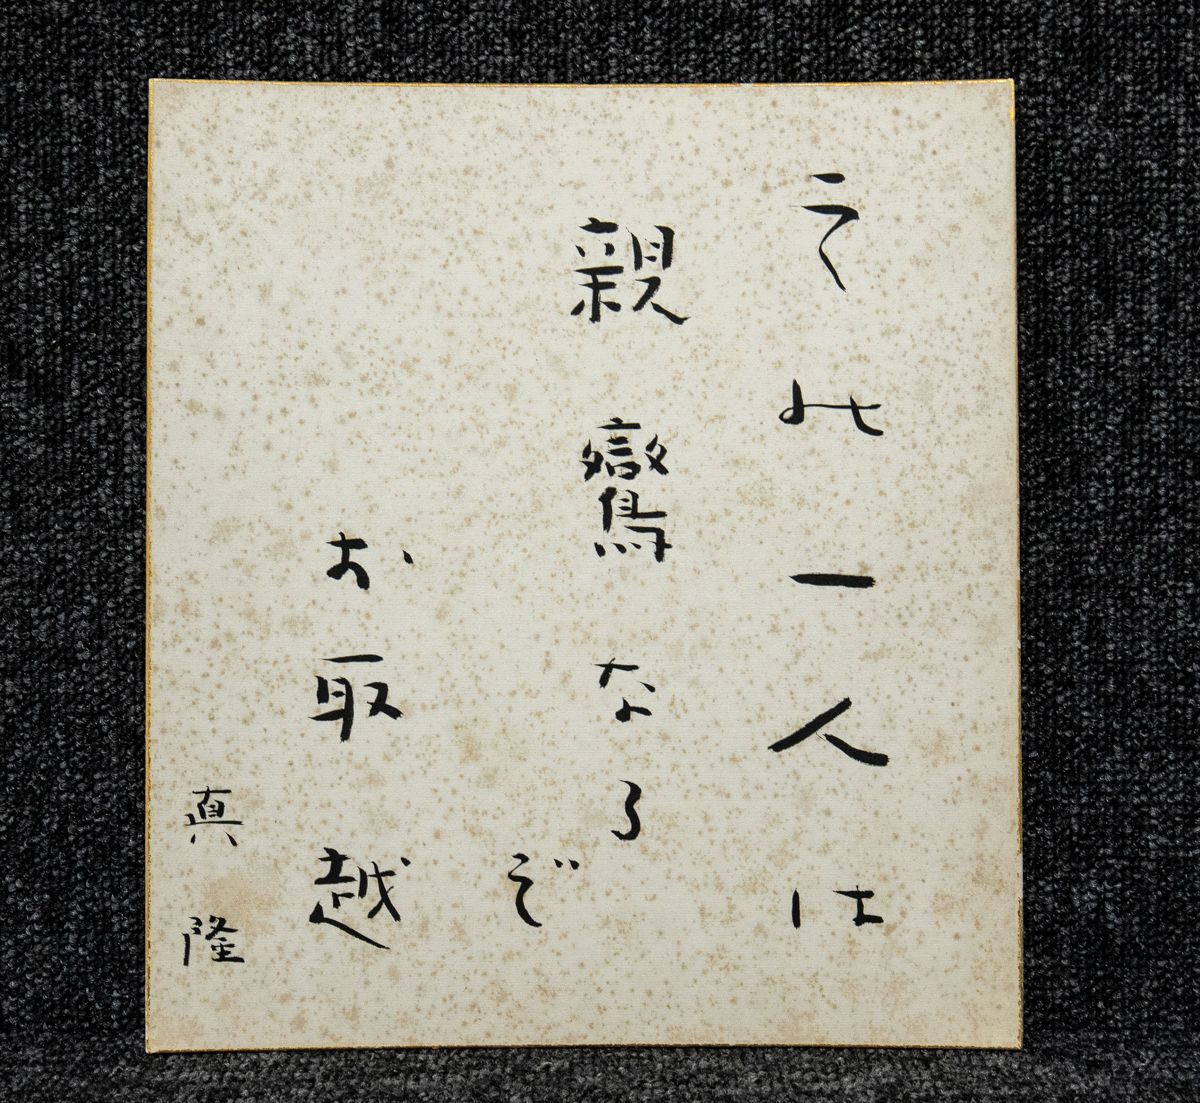 その一人は
親鸞なる
ぞ
お取越
真隆